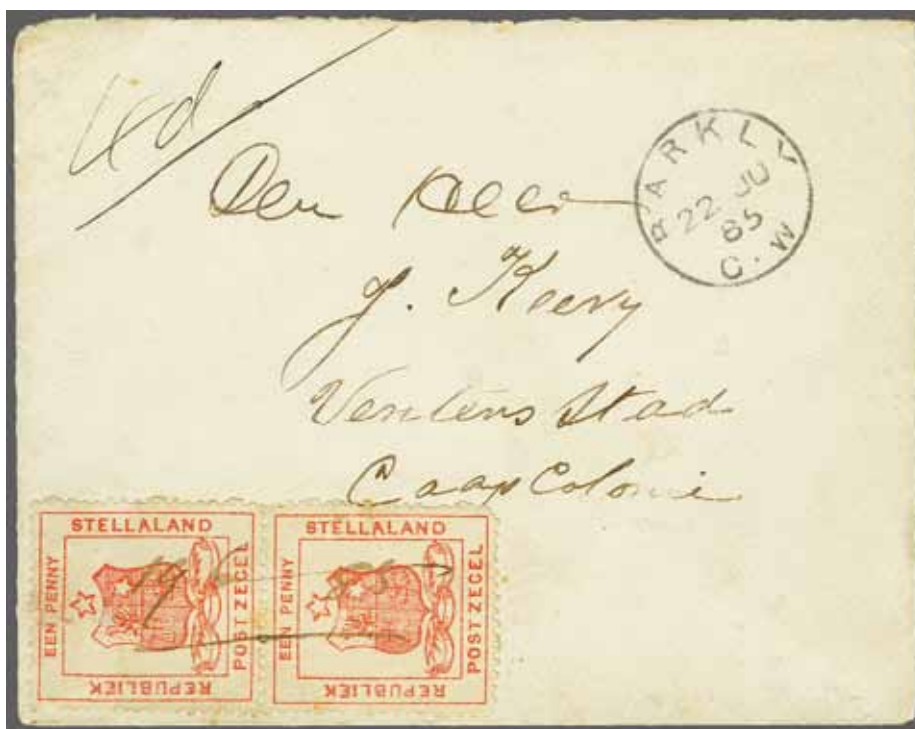 4d
Den Heer
J. Keevy
Venters Stad
Caap Colonie
BARKLY
22 JU
85
C.W
STELLALAND
EEN PENNY
POSTZEGEL
REPUBLIEK
STELLALAND
EEN PENNY
POSTZEGEL
REPUBLIEK
19 6 85